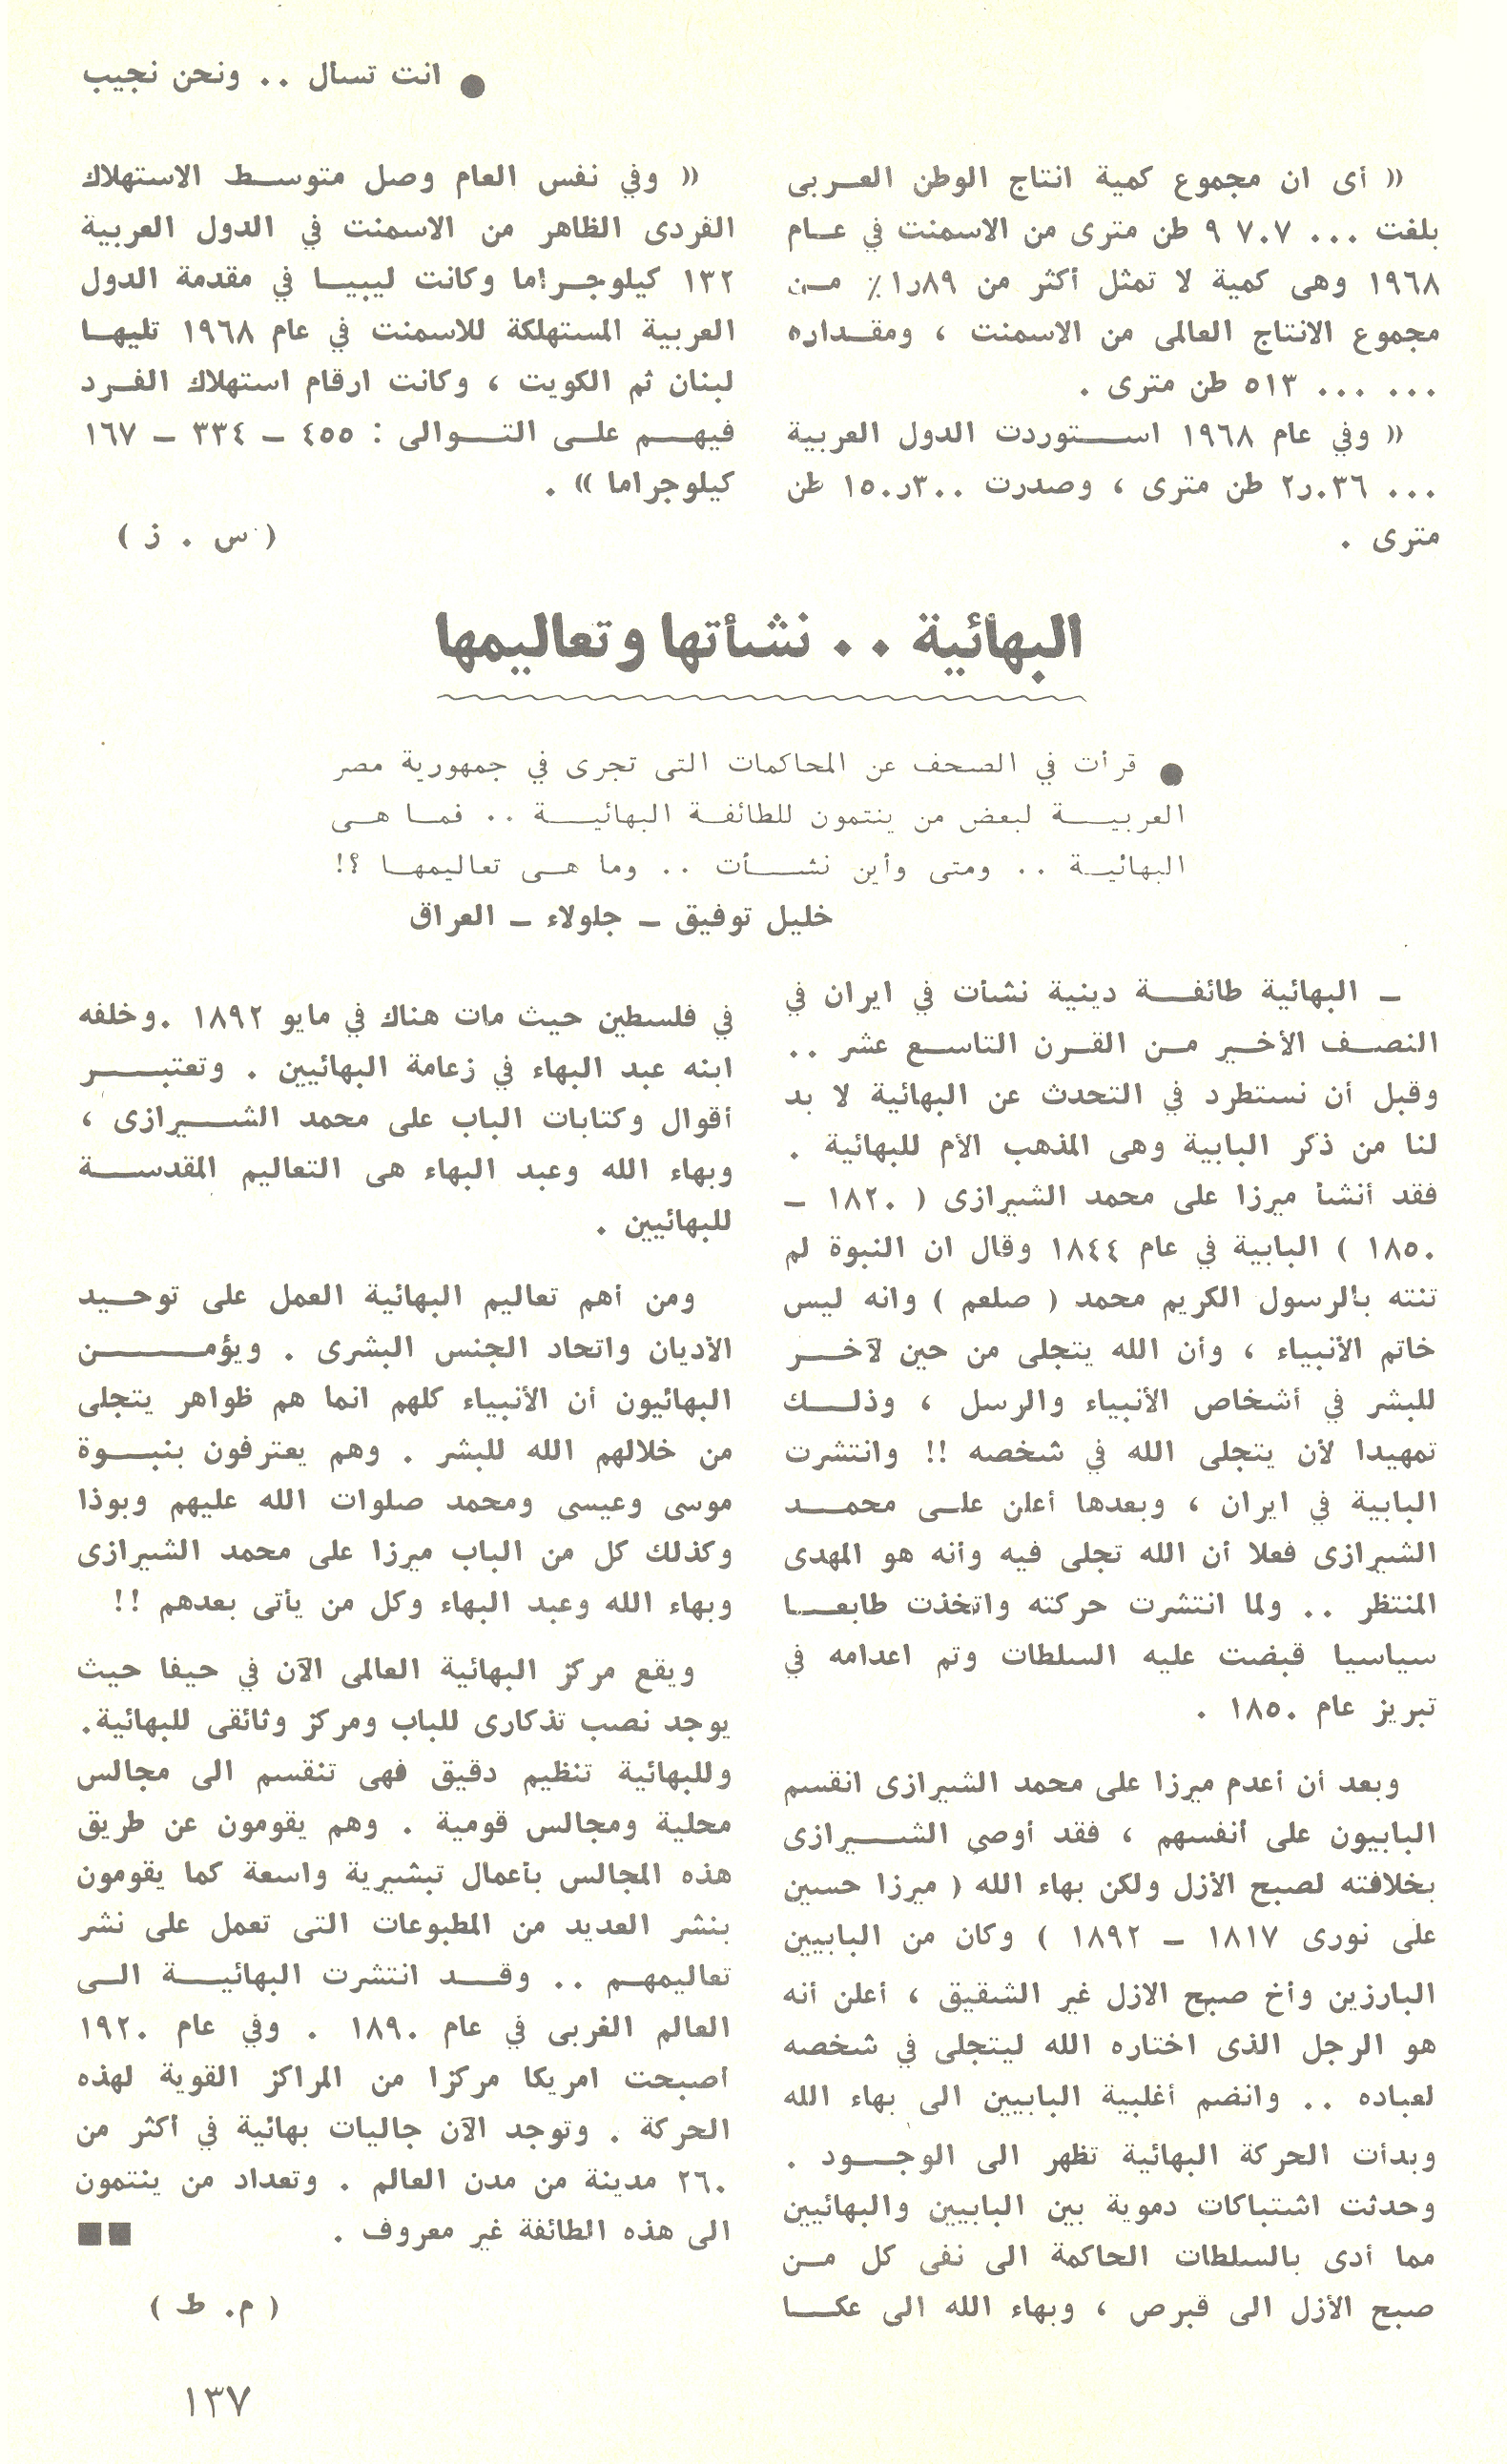 ● انت تسأل .. ونحن نجيب
« أى ان مجموع كمية انتاج الوطن العربى
بلغت ٠٠٠ ٧٠٧ ٩ طن مترى من الاسمنت في عام
١٩٦٨ وهى كمية لا تمثل أكثر من ١٫٨٩٪ من
مجموع الانتاج العالمى من الاسمنت ، ومقداره
٠٠٠ ٠٠٠ ٥١٣ طن مترى .
« وفي عام ١٩٦٨ استوردت الدول العربية
٠٠٠ ٢ر٠٣٦ طن مترى ، وصدرت ١٥٠ر٣٠٠ طن
مترى .
« وفي نفس العام وصل متوسط الاستهلاك
الفردى الظاهر من الاسمنت في الدول العربية
١٣٢ كيلوجراما وكانت ليبيا في مقدمة الدول
العربية المستهلكة للاسمنت في عام ١٩٦٨ تليها
لبنان ثم الكويت ، وكانت ارقام استهلاك الفرد
فيهم على التوالى : ٤٥٥ – ٣٣٤ – ١٦٧
كيلوجراما » .
( س . ز )
البهائية .. نشأتها وتعاليمها
● قرأت في الصحف عن المحاكمات التى تجرى في جمهورية مصر
العربية لبعض من ينتمون للطائفة البهائية .. فما هى
البهائية .. ومتى وأين نشأت .. وما هى تعاليمها ؟!
خليل توفيق – جلولاء – العراق
– البهائية طائفة دينية نشأت في ايران في
النصف الأخير من القرن التاسع عشر ..
وقبل أن نستطرد في التحدث عن البهائية لا بد
لنا من ذكر البابية وهى المذهب الأم للبهائية .
فقد أنشأ ميرزا على محمد الشيرازى ( ١٨٢٠ –
١٨٥٠ ) البابية في عام ١٨٤٤ وقال ان النبوة لم
تنته بالرسول الكريم محمد ( صلعم ) وانه ليس
خاتم الأنبياء ، وأن الله يتجلى من حين لآخر
للبشر في أشخاص الأنبياء والرسل ، وذلك
تمهيدا لأن يتجلى الله في شخصه !! وانتشرت
البابية في ايران ، وبعدها أعلن على محمد
الشيرازى فعلا أن الله تجلى فيه وأنه هو المهدى
المنتظر .. ولما انتشرت حركته واتخذت طابعا
سياسيا قبضت عليه السلطات وتم اعدامه في
تبريز عام ١٨٥٠ .
وبعد أن أعدم ميرزا على محمد الشيرازى انقسم
البابيون على أنفسهم ، فقد أوصى الشيرازى
بخلافته لصبح الأزل ولكن بهاء الله ( ميرزا حسين
على نورى ١٨١٧ – ١٨٩٢ ) وكان من البابيين
البارزين وأخ صبح الازل غير الشقيق ، أعلن أنه
هو الرجل الذى اختاره الله ليتجلى في شخصه
لعباده .. وانضم أغلبية البابيين الى بهاء الله
وبدأت الحركة البهائية تظهر الى الوجود .
وحدثت اشتباكات دموية بين البابيين والبهائيين
مما أدى بالسلطات الحاكمة الى نفى كل من
صبح الأزل الى قبرص ، وبهاء الله الى عكا
في فلسطين حيث مات هناك في مايو ١٨٩٢ .وخلفه
ابنه عبد البهاء في زعامة البهائيين . وتعتبر
أقوال وكتابات الباب على محمد الشيرازى ،
وبهاء الله وعبد البهاء هى التعاليم المقدسة
للبهائيين .
ومن أهم تعاليم البهائية العمل على توحيد
الأديان واتحاد الجنس البشرى . ويؤمن
البهائيون أن الأنبياء كلهم انما هم ظواهر يتجلى
من خلالهم الله للبشر . وهم يعترفون بنبوة
موسى وعيسى ومحمد صلوات الله عليهم وبوذا
وكذلك كل من الباب ميرزا على محمد الشيرازى
وبهاء الله وعبد البهاء وكل من يأتى بعدهم !!
ويقع مركز البهائية العالمى الآن في حيفا حيث
يوجد نصب تذكارى للباب ومركز وثائقى للبهائية.
وللبهائية تنظيم دقيق فهى تنقسم الى مجالس
محلية ومجالس قومية . وهم يقومون عن طريق
هذه المجالس بأعمال تبشيرية واسعة كما يقومون
بنشر العديد من المطبوعات التى تعمل على نشر
تعاليمهم .. وقد انتشرت البهائية الى
العالم الغربى في عام ١٨٩٠ . وفي عام ١٩٢٠
أصبحت امريكا مركزا من المراكز القوية لهذه
الحركة . وتوجد الآن جاليات بهائية في أكثر من
٢٦٠ مدينة من مدن العالم . وتعداد من ينتمون
الى هذه الطائفة غير معروف .
( م. ط )
١٣٧